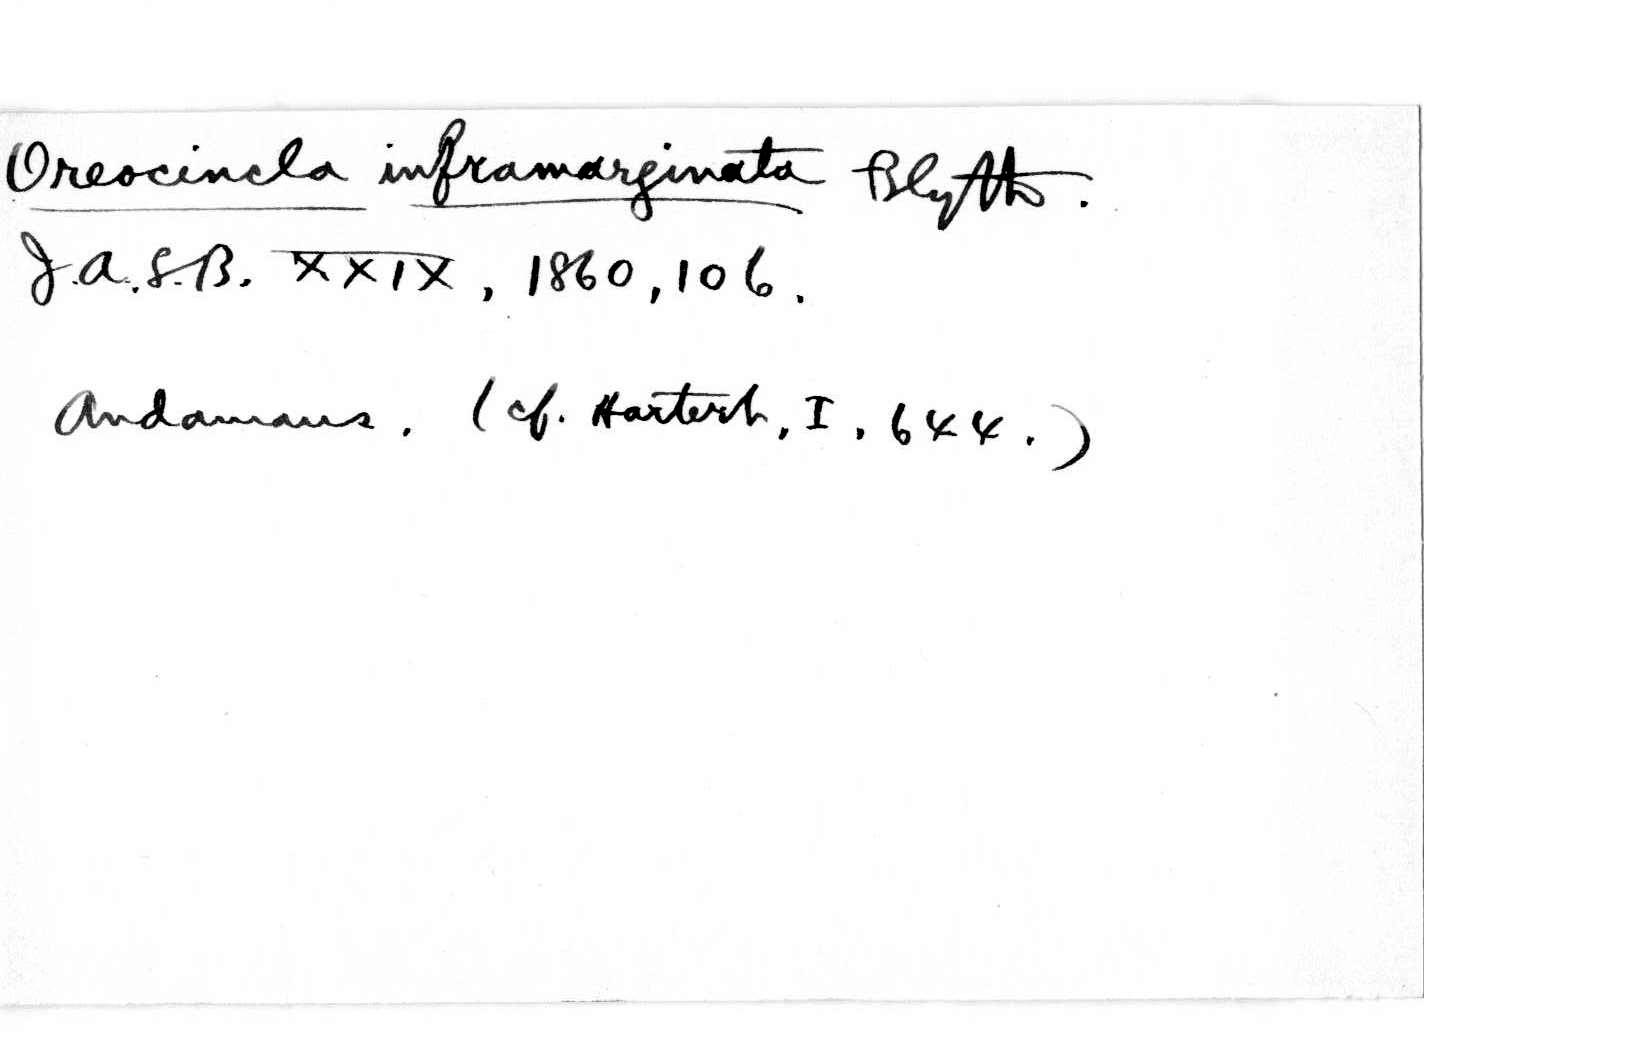 Oreocincla inframarginata Blyth.
J.A.S.B. XXIX, 1860, 106.
Andamans. (cf. Hartert, I, 644.)